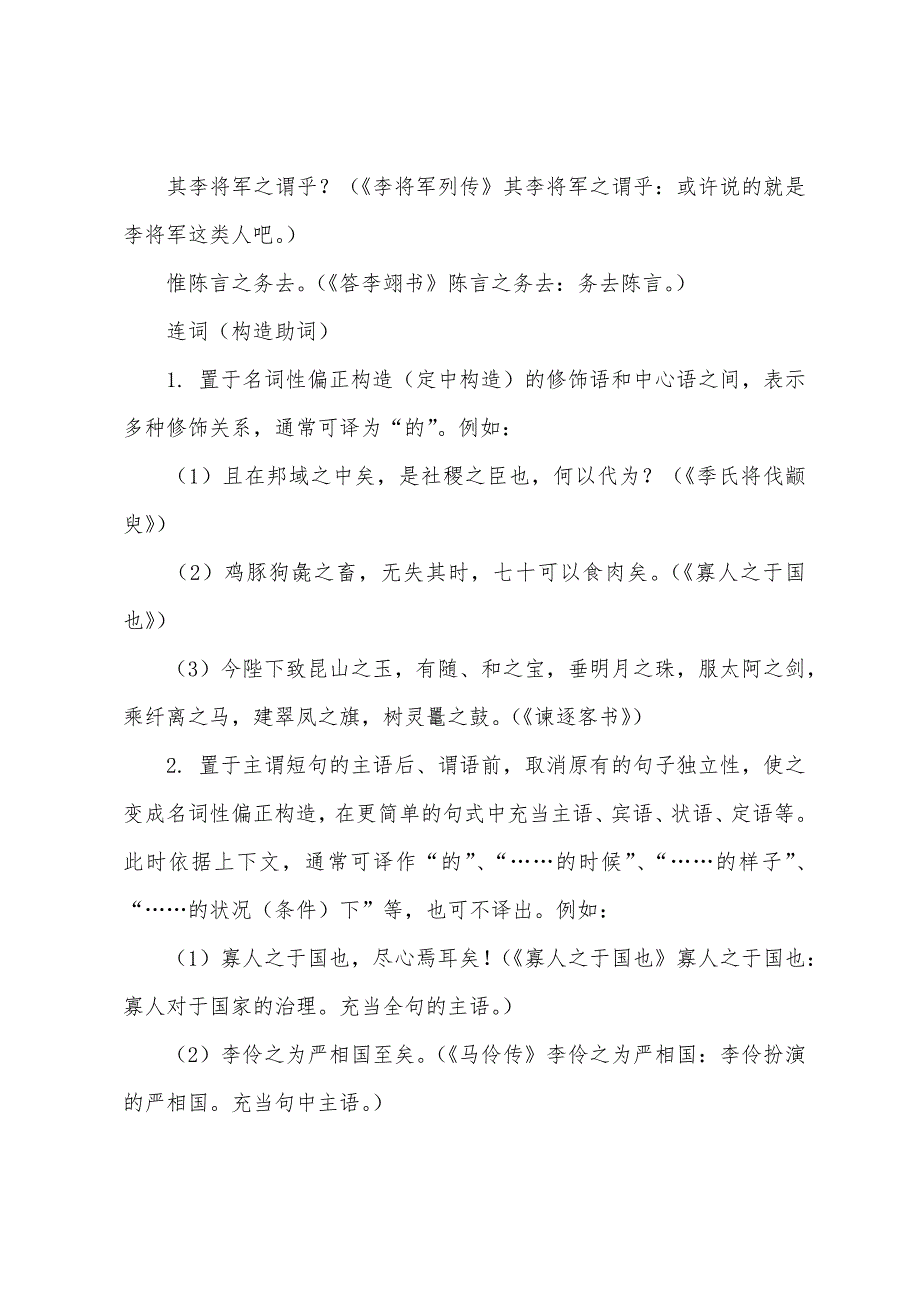 其李将军之谓乎？（《李将军列传》其李将军之谓乎：或许说的就是
李将军这类人吧。）
惟陈言之务去。（《答李翊书》陈言之务去：务去陈言。）
连词（构造助词）
1. 置于名词性偏正构造（定中构造）的修饰语和中心语之间，表示
多种修饰关系，通常可译为“的”。例如：
（1）且在邦域之中矣，是社稷之臣也，何以代为？（《季氏将伐颛
臾》）
（2）鸡豚狗彘之畜，无失其时，七十可以食肉矣。（《寡人之于国
也》）
（3）今陛下致昆山之玉，有随、和之宝，垂明月之珠，服太阿之剑，
乘纤离之马，建翠凤之旗，树灵鼍之鼓。（《谏逐客书》）
2. 置于主谓短句的主语后、谓语前，取消原有的句子独立性，使之
变成名词性偏正构造，在更简单的句式中充当主语、宾语、状语、定语等。
此时依据上下文，通常可译作“的”、“……的时候”、“……的样子”、
“……的状况（条件）下”等，也可不译出。例如：
（1）寡人之于国也，尽心焉耳矣！（《寡人之于国也》寡人之于国也：
寡人对于国家的治理。充当全句的主语。）
（2）李伶之为严相国至矣。（《马伶传》李伶之为严相国：李伶扮演
的严相国。充当句中主语。）